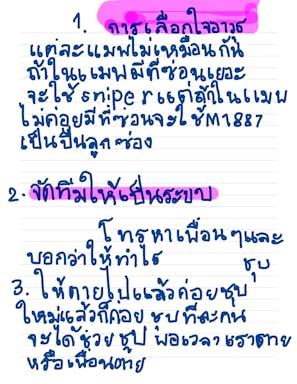 1. การเลือกใจอาวุธ
แต่ละแมพไม่เหมือนกัน
ถ้าในแมพมีที่ซ่อนเยอะ
จะใช้ sniper แต่ถ้าในแมพ
ไม่ค่อยมีที่ซ่อนจะใช้ M1887
เป็นปืนลูกซอง
2. จัดทีมให้เป็นระบบ
โทรหาเพื่อนๆและ
บอกว่าให้ทำไร
ชุบ
3. ให้ตายไปแล้วค่อยชุบ
ใหม่แล้วก็คอยชุบทีละคน
จะได้ช่วยชุบ พอเวลาเราตาย
หรือเพื่อนตาย